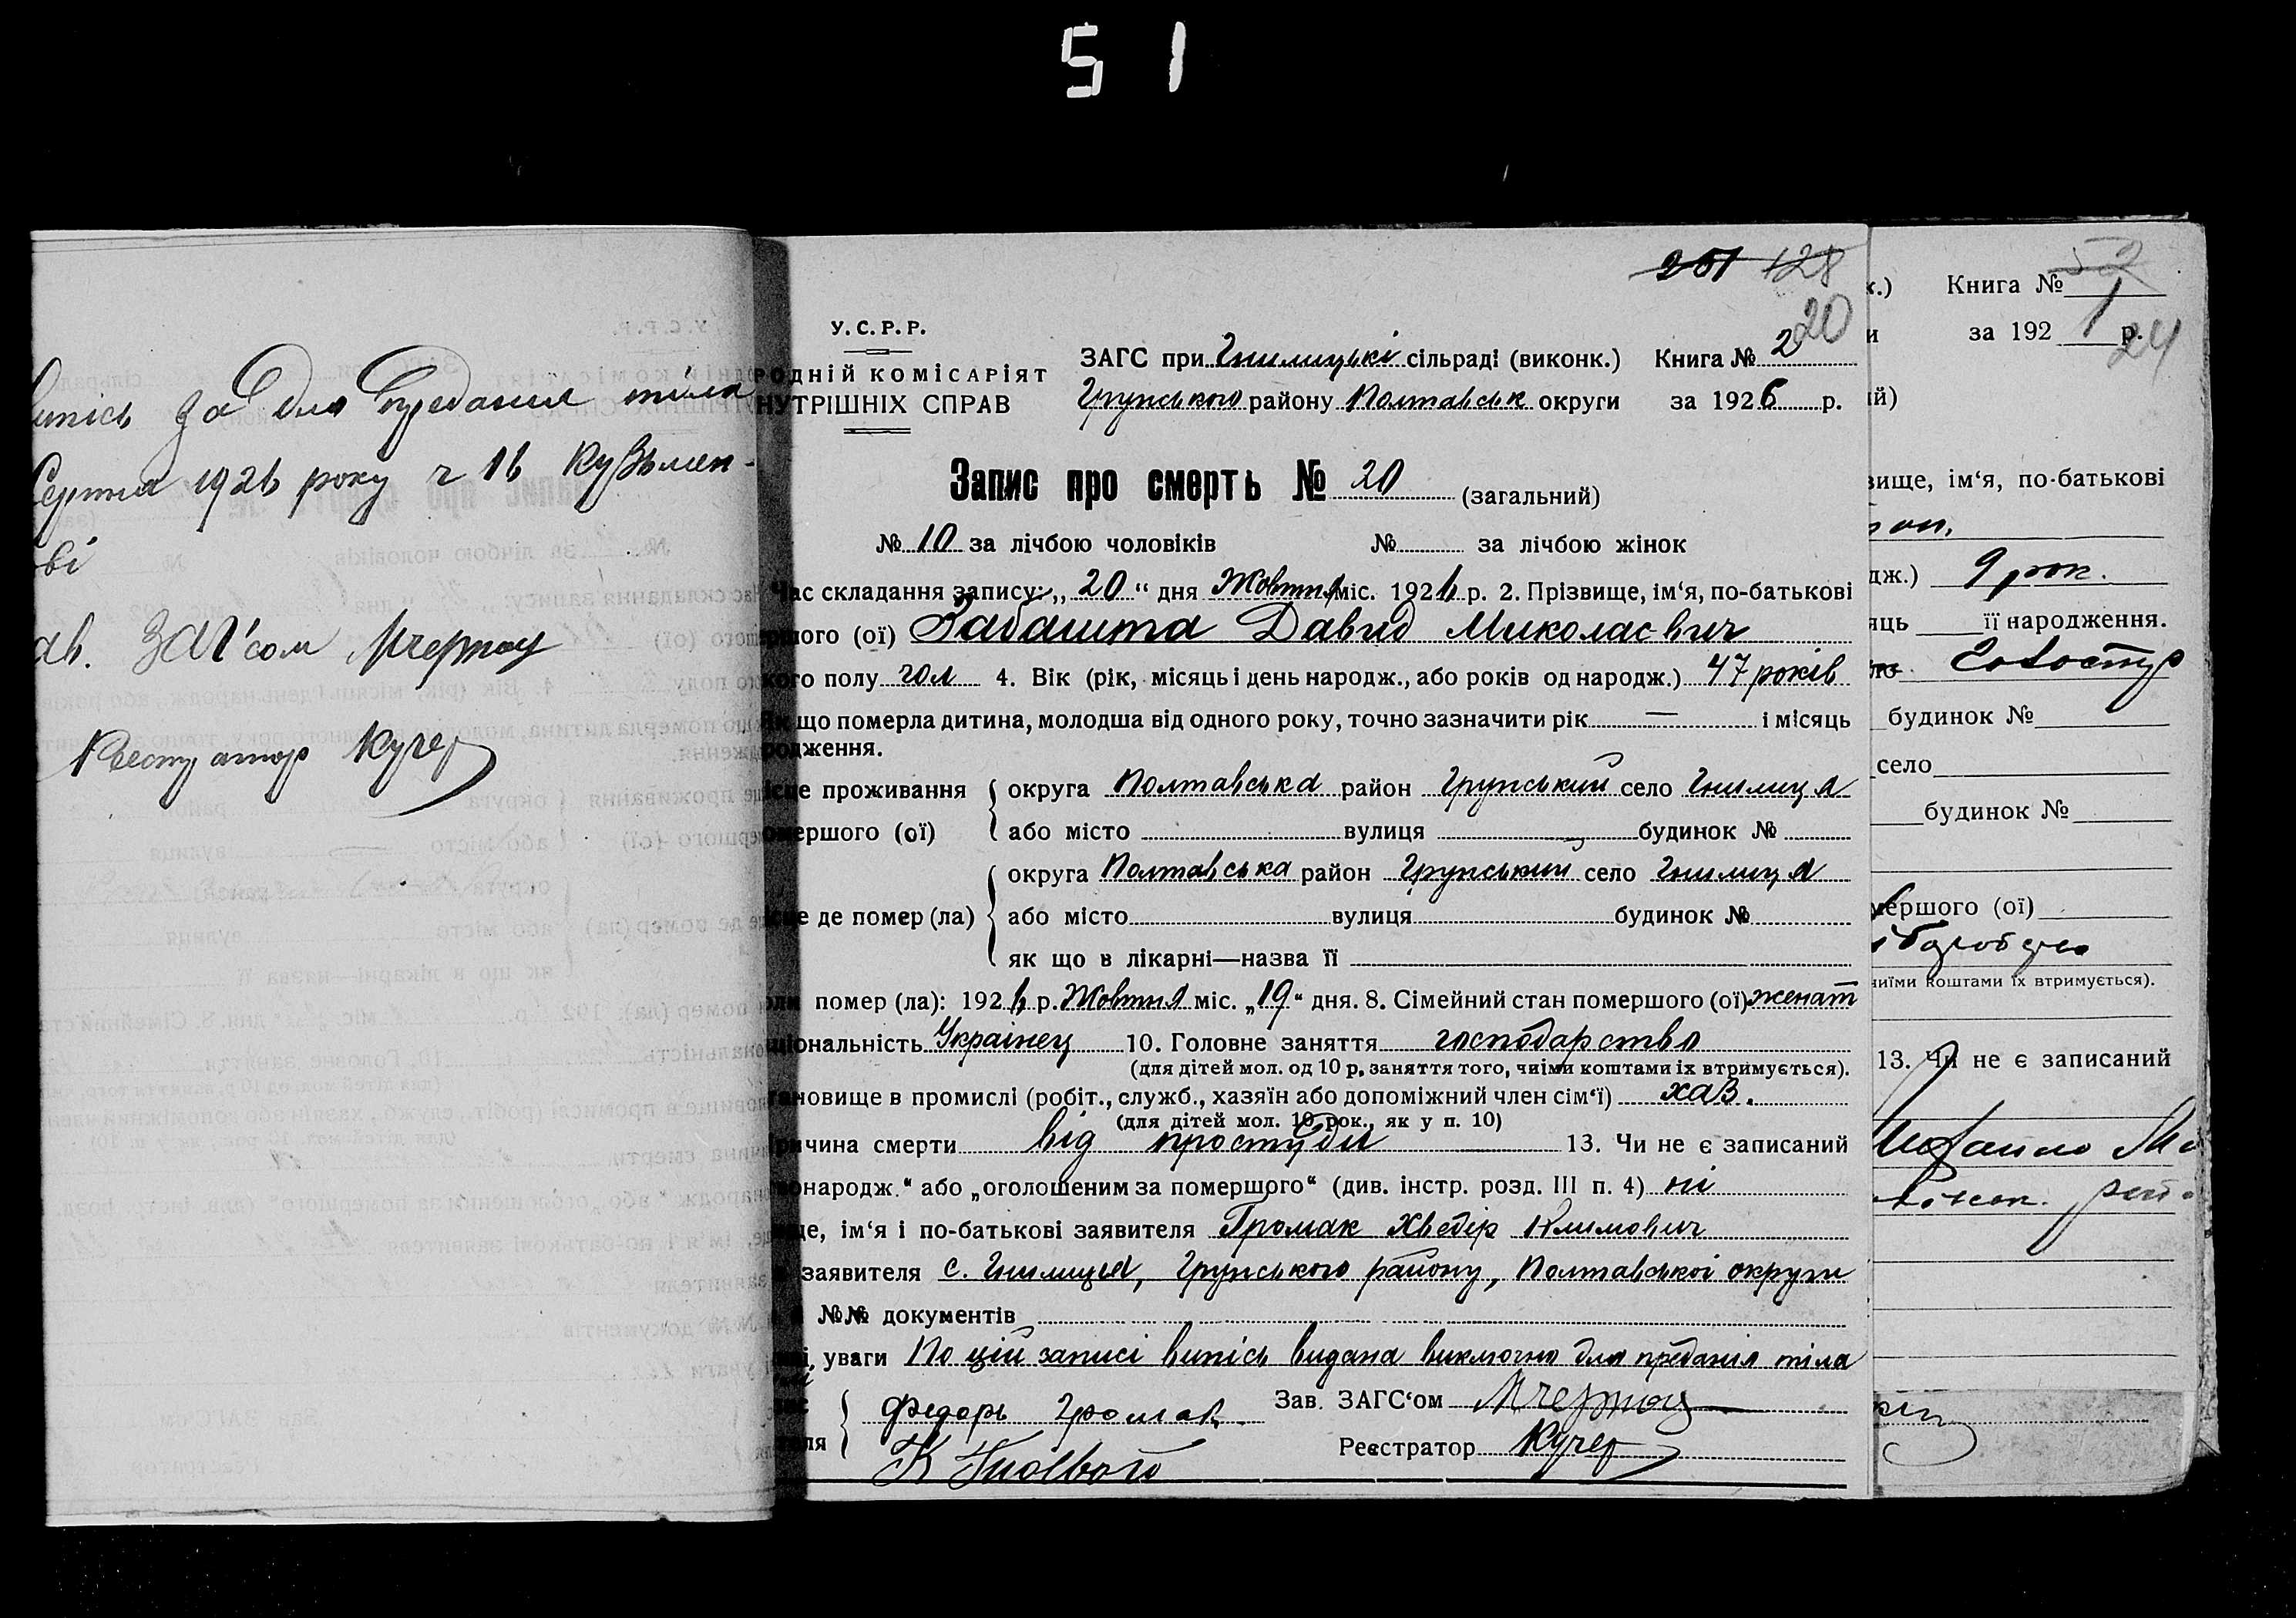 51
за для предания тіла
Серпня 1926 року ч 16 Кузьмен-
ові
ав. ЗАГ'сом
Реєстратор Кучер
251 128
20
У.С.Р.Р.
ОДНІЙ КОМІСАРІЯТ
НУТРІШНІХ СПРАВ
ЗАГС при Гнилицькі сільраді (виконк.) Книга № 2
Грунського району Полтавськ округи за 1926 р.
Запис про смерть № 20 (загальний)
№ 10 за лічбою чоловіків № за лічбою жінок
Час складання запису: „ 20 “ дня Жовтня міс. 1926 р. 2. Прізвище, ім‘я, по-батькові
ршого (ої) Забашта Давид Миколаєвич
кого полу чол 4. Вік (рік, місяць і день народж., або років од народж.) 47 років
Як що померла дитина, молодша від одного року, точно зазначити рік — і місяць
родження.
сце проживання округа Полтавська район Грунський село Гнилиця
омершого (ої) або місто вулиця будинок №
округа Полтавська район Грунський село Гнилиця
сце де помер (ла) або місто вулиця будинок №
як що в лікарні—назва її
ли помер (ла): 1926 р. Жовтня міс. „19“ дня. 8. Сімейний стан помершого (ої) женат
ціональність Українец 10. Головне заняття господарство
(для дітей мол. од 10 р. заняття того, чиїми коштами їх втримується).
ановище в промислі (робіт., служб., хазяїн або допоміжний член сім‘ї) хаз.
(для дітей мол. 10 рок., як у п. 10)
ричина смерти від простуди 13. Чи не є записаний
онародж.“ або „оголошеним за помершого“ (див. інстр. розд. III п. 4) ні
ще, ім‘я і по-батькові заявителя Громак Хведір Климович
заявителя с. Гнилиця, Грунського району, Полтавської округи
№№ документів
уваги По цій записі випісь видана виключно для предания тіла
Федорь Громак Зав. ЗАГС‘ом
ля Реєстратор Кучер
.) Книга № 52
1
за 192 р.
24
ій)
вище, ім‘я, по-батькові
дж.) 9 рок.
яць її народження.
будинок №
село
будинок №
мершого (ої)
чиїми коштами їх втримується).
13. Чи не є записаний